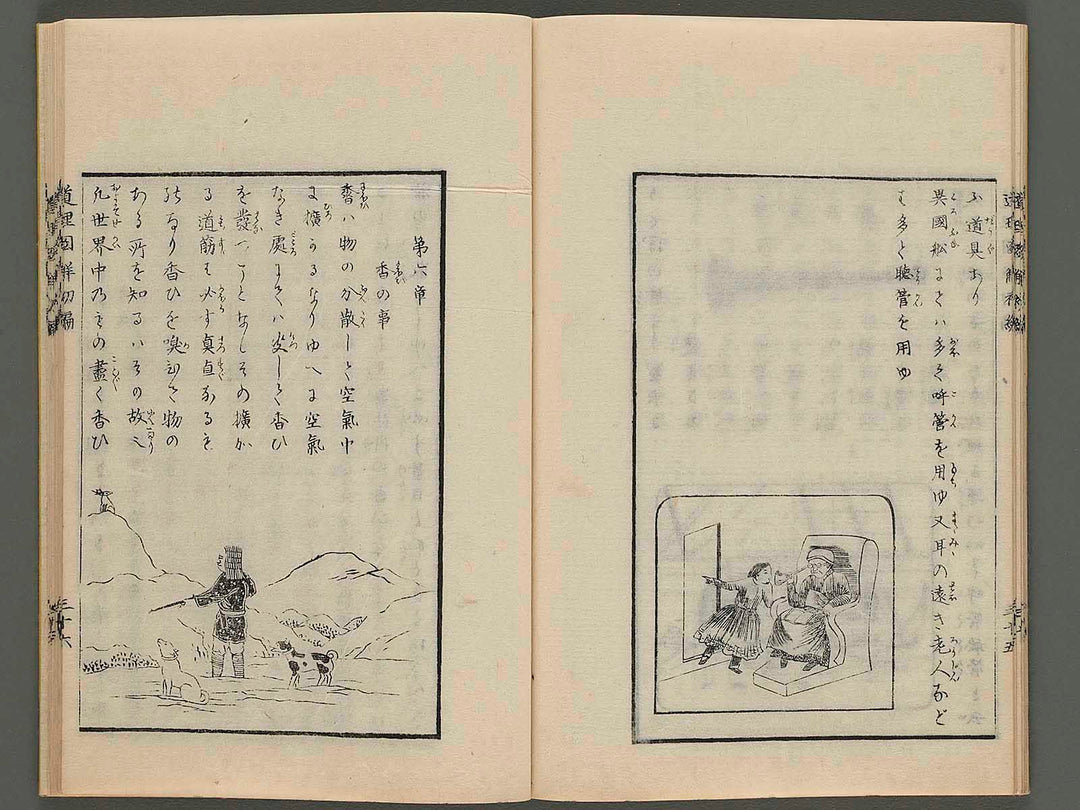 ふ道具あり
異國舩にてハ多く呼管を用ゆ又耳の遠き老人など
も多く聴管を用ゆ
三十五
第六章
香の事
香ハ物の分散して空氣中
に擴がるなりゆへに空氣
なき處にてハ决して香ひ
を發つことなしその擴が
る道筋も必す真直なるも
のなり香ひを嗅ぎて物の
ある所を知るハその故也
凢世界中のものの盡く香ひ
道理圖解初編
三十六